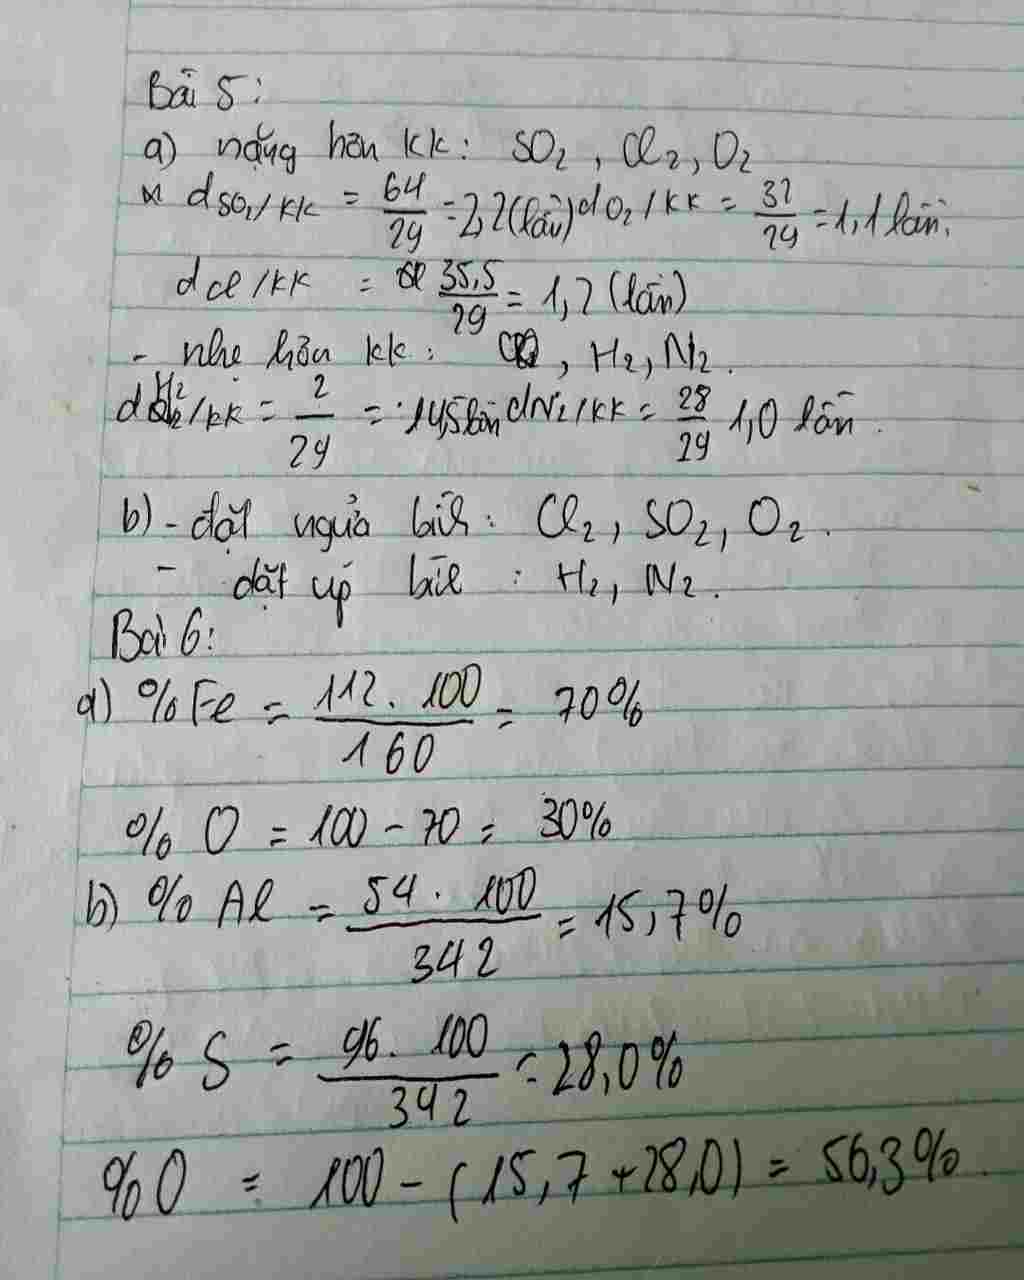 Bài 5:
a) nặng hơn kk: SO2, Cl2, O2
dSO2/kk = 64/29 = 2,2(lần) dO2/kk = 32/29 = 1,1 lần.
dcl/kk = 35,5/29 = 1,2 (lần)
- nhẹ hơn kk: , H2, N2.
dH2/kk = 2/29 = lần dN2/kk = 28/29 1,0 lần.
b) - đặt ngửa bìh: Cl2, SO2, O2.
- đặt úp bìh: H2, N2.
Bài 6:
a) %Fe = 112.100/160 = 70%
% O = 100 - 70 = 30%
b) % Al = 54.100/342 = 15,7%
% S = 96.100/342 = 28,0%
%O = 100 - (15,7 + 28,0) = 56,3%.